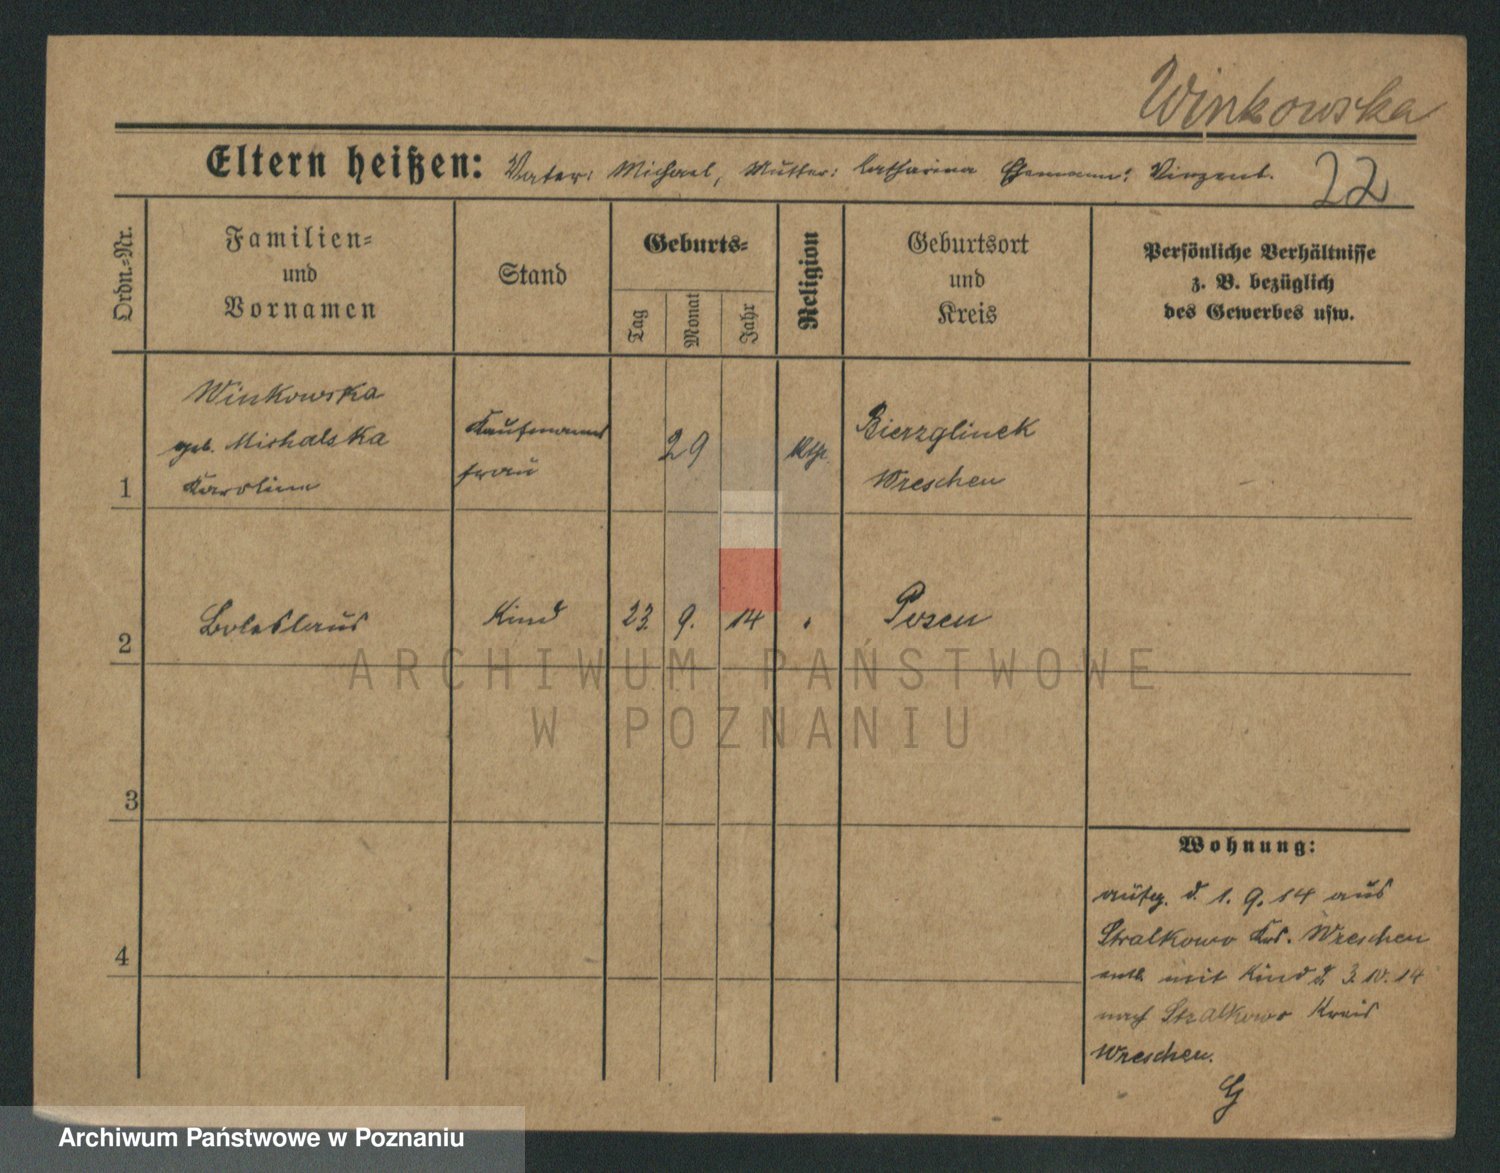 Winkowska
Eltern heißen: Vater: Michael, Mutter: Catharina Ehemann: Vinzent.
22
Ordn.=Nr.
Familien=
und
Vornamen
Stand
Geburts=
Tag
Monat
Jahr
Religion
Geburtsort
und
Kreis
Persönliche Verhältnisse
z. B. bezüglich
des Gewerbes usw.
1
Winkowska
geb. Michalska
Karolina
Kaufmanns
frau
29
kth.
Bierzglinek
Wreschen
2
Boleslaus
Kind
23.
9.
14
Posen
3
4
Wohnung:
aufg. d. 1. 9. 14 aus
Stralkowo Krs. Wreschen
entl. mit Kind d. 3. 10. 14
nach Stralkowo Kreis
Wreschen.
G
ARCHIWUM PAŃSTWOWE
W POZNANIU
Archiwum Państwowe w Poznaniu